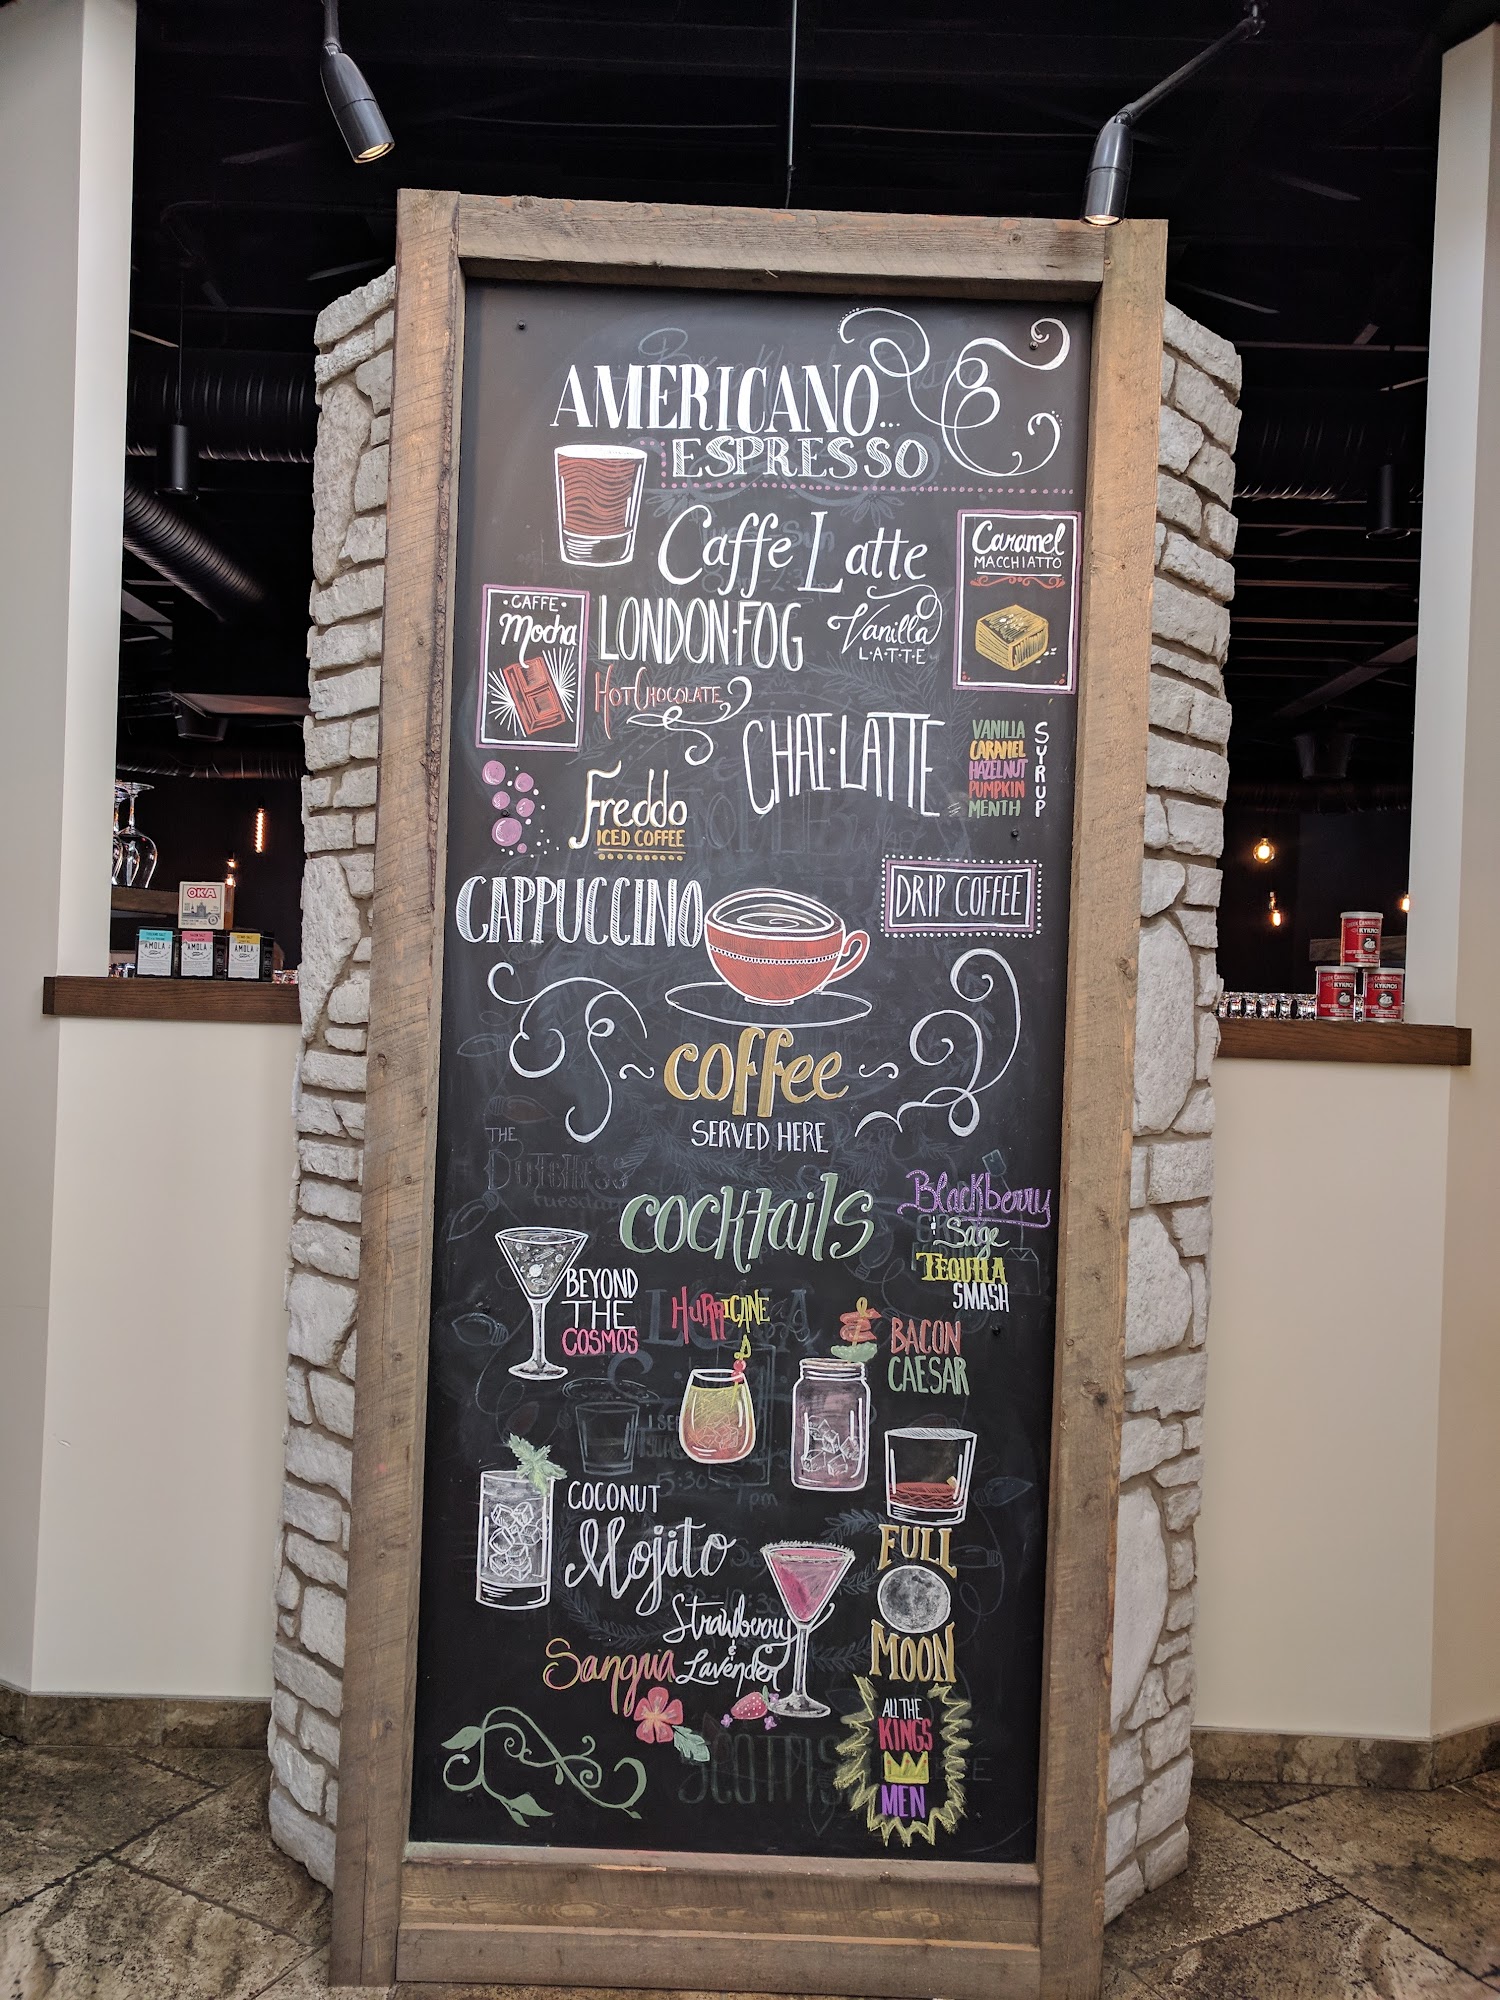 AMERICANO...
ESPRESSO
Caffe Latte
Caramel
MACCHIATTO
• CAFFE •
Mocha
LONDON•FOG
Vanilla
L•A•T•T•E
HOT CHOCOLATE
CHAI•LATTE
VANILLA
CARAMEL
HAZELNUT
PUMPKIN
MENTH
SYRUP
Freddo
ICED COFFEE
CAPPUCCINO
DRIP COFFEE
coffee
SERVED HERE
THE
DUTCHESS
tuesday
cocktails
Blackberry
Sage
TEQUILA
SMASH
BEYOND
THE
COSMOS
HURRICANE
BACON
CAESAR
5:30-9pm
COCONUT
Mojito
FULL
MOON
Strawberry
&
Lavender
Sangria
ALL THE
KINGS
MEN
OKA
AMOLA
AMOLA
AMOLA
KYKNOS
KYKNOS
KYKNOS